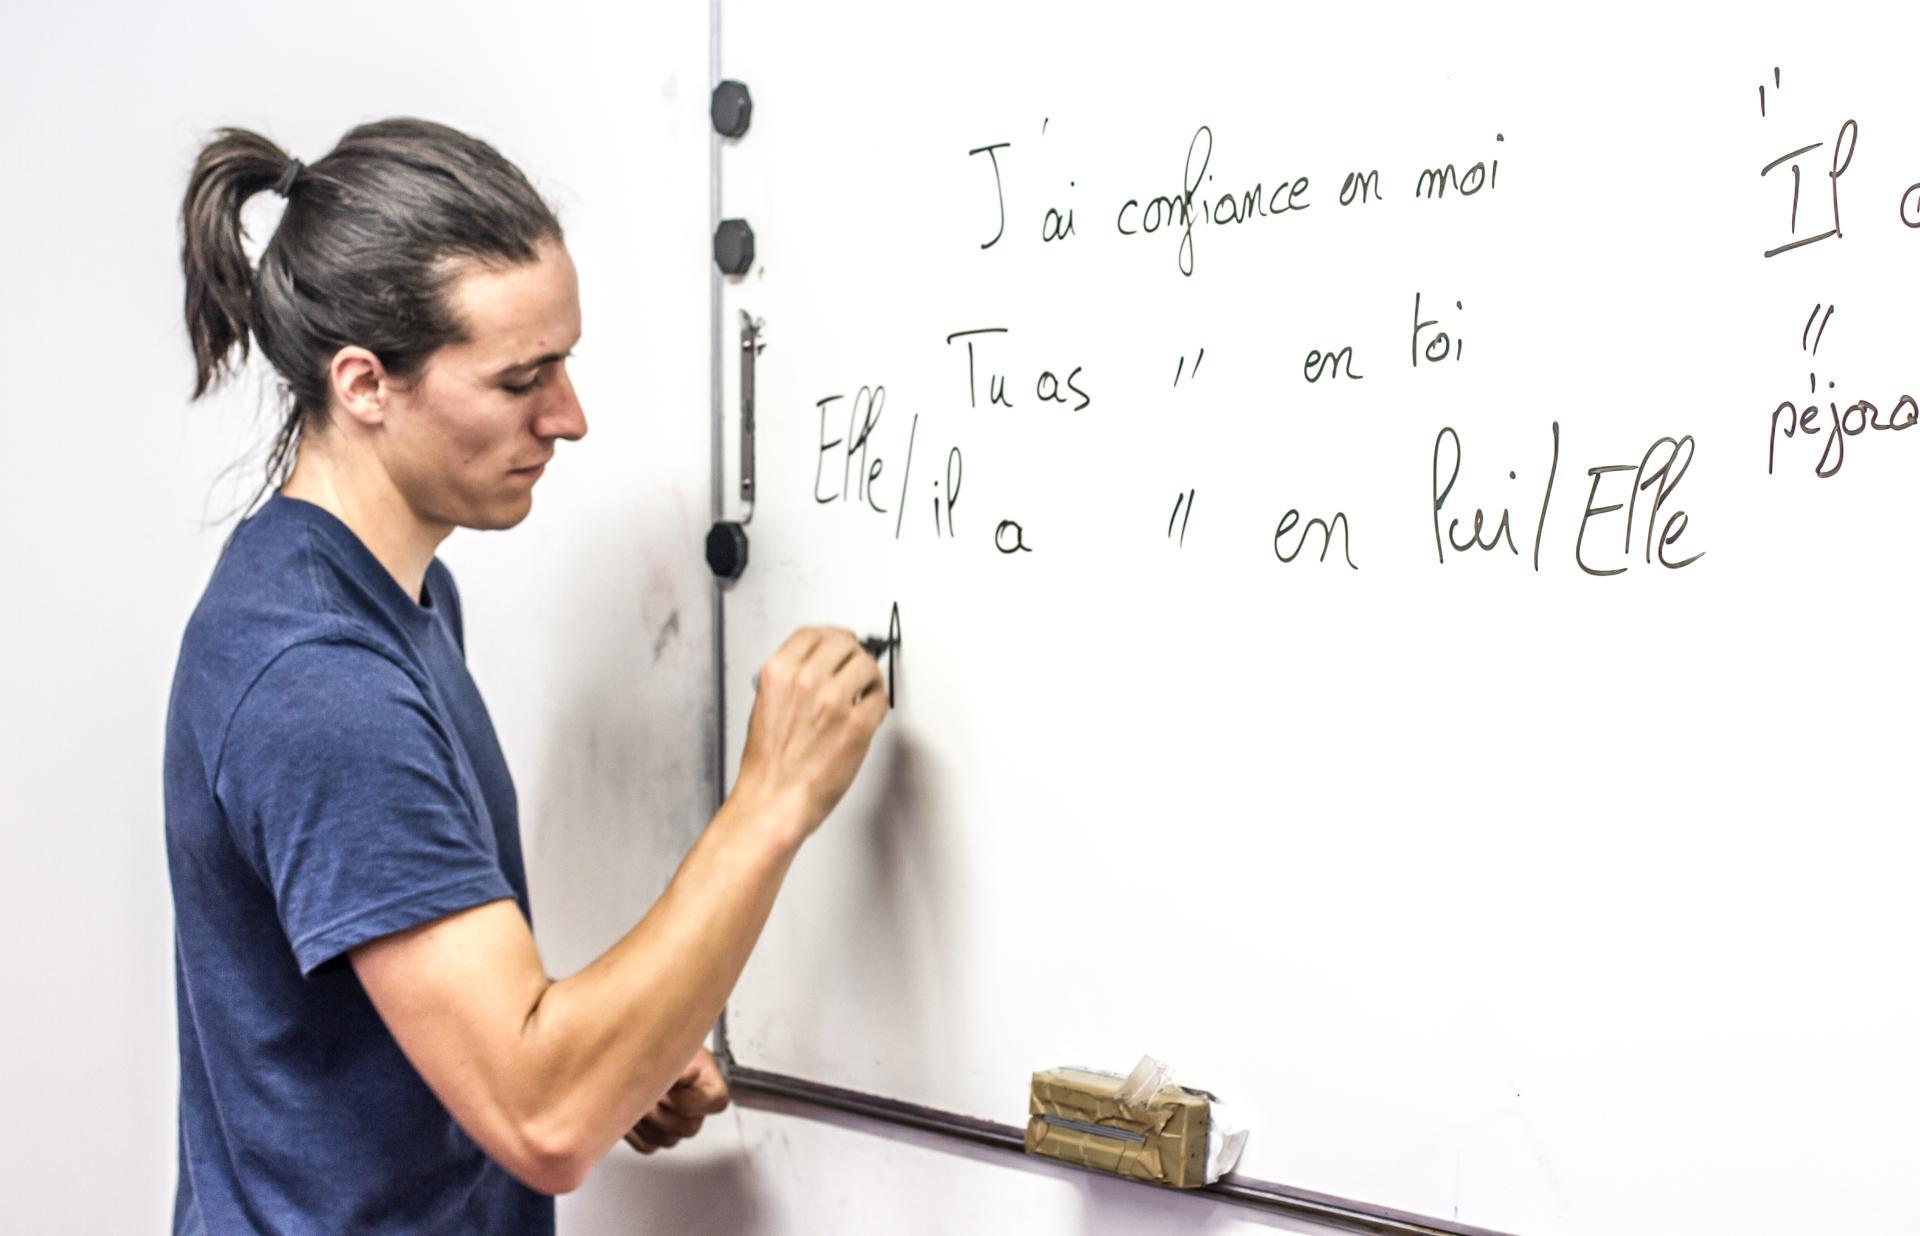 J'ai confiance en moi
Tu as " en toi
Elle/il a " en lui/Elle
Il
"